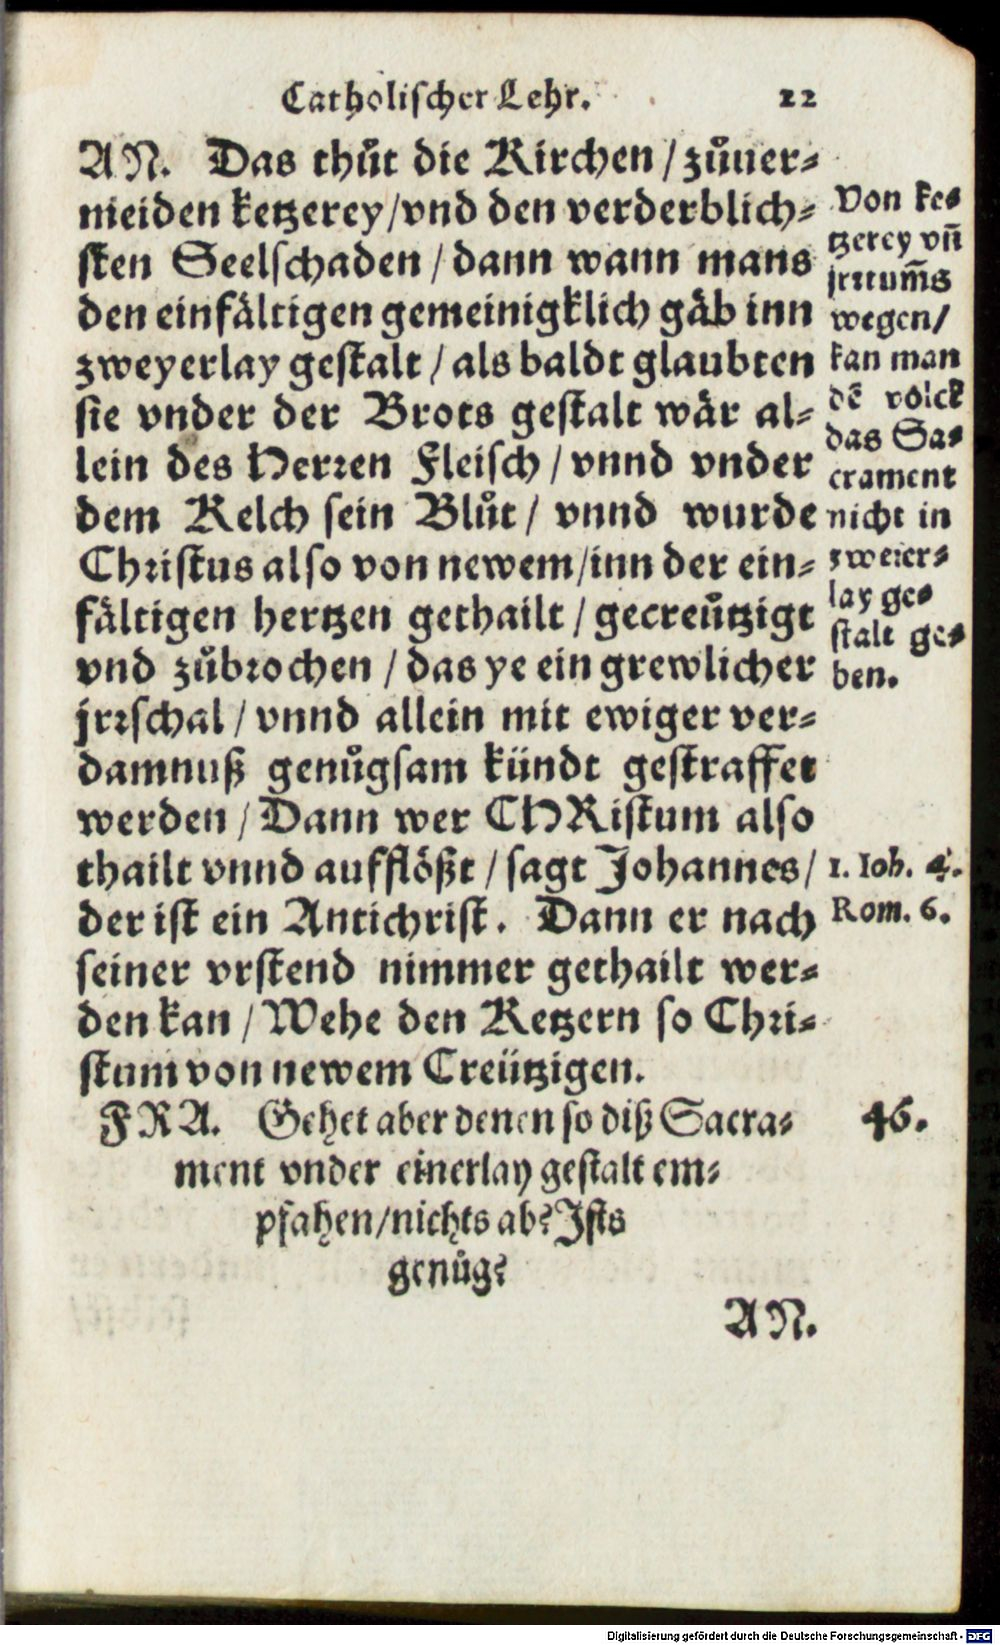 Catholischer Lehr. 22
AN. Das thůt die Kirchen / zůuer⸗
meiden ketzerey/vnd den verderblich⸗
sten Seelschaden / dann wann mans
den einfältigen gemeinigklich gäb inn
zweyerlay gestalt / als baldt glaubten
sie vnder der Brots gestalt wär al⸗
lein des Herren Fleisch / vnnd vnder
dem Kelch sein Blůt / vnnd wurde
Christus also von newem/inn der ein⸗
fältigen hertzen gethailt / gecreůtzigt
vnd zůbrochen / das ye ein grewlicher
jrrschal / vnnd allein mit ewiger ver⸗
damnuß genůgsam kündt gestraffet
werden / Dann wer CHRistum also
thailt vnnd aufflößt / sagt Johannes /
der ist ein Antichrist. Dann er nach
seiner vrstend nimmer gethailt wer⸗
den kan / Wehe den Ketzern so Chri⸗
stum von newem Creützigen.
Von ke⸗
tzerey vñ
jrrtum̃s
wegen/
kan man
dē volck
das Sa⸗
crament
nicht in
zweier⸗
lay ge⸗
stalt ge⸗
ben.
1. Ioh. 4.
Rom. 6.
FRA. Gehet aber denen so diß Sacra⸗
ment vnder einerlay gestalt em⸗
pfahen/nichts ab? Ists
genůg?
46.
AN.
Digitalisierung gefördert durch die Deutsche Forschungsgemeinschaft - DFG